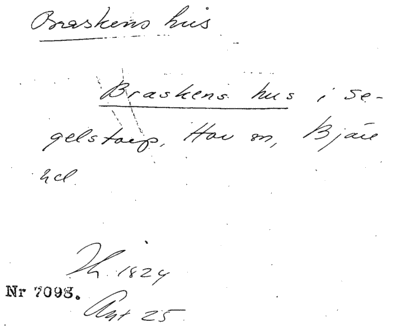 Braskens hus
Braskens hus i Se-
gelstorp, Hov sn, Bjäre
hd.
Th. 1824
Nr 7093.
Ant 25